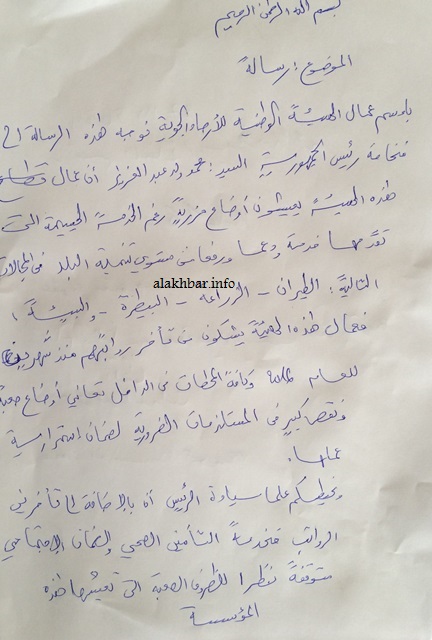 بسم الله الرحمن الرحيم
الموضوع: رسالة
باسم عمال الهيئة الوطنية للأرصاد الجوية نوجه هذه الرسالة إلى
فخامة رئيس الجمهورية السيد: محمد ولد عبد العزيز أن عمال قطاع
هذه الهيئة يعيشون أوضاع مزرية رغم الخدمة الجسيمة التي
تقدمها خدمة ودعما ورفعا من مستوى تنمية البلد في المجالات
alakhbar.info
التالية: الطيران - الزراعة - البيطرة - والبيئة،
فعمال هذه الهيئة يشتكون من تأخر رواتبهم منذ شهرين
للعام وكافة المحطات في الداخل تعاني أوضاع صعبة
ونقص كبير في المستلزمات الضرورية لضمان استمرارية
عملها.
ونحيطكم علما سيادة الرئيس أنه بالإضافة إلى تأخر في
الرواتب فخدمة التأمين الصحي والضمان الاجتماعي
متوقفة نظرا للظروف الصعبة التي تعيشها هذه
المؤسسة